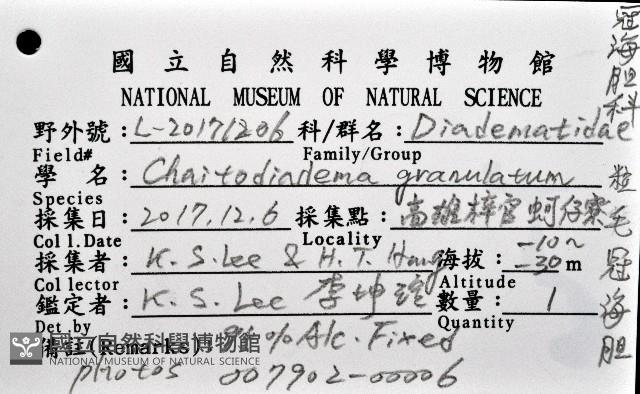 國立自然科學博物館
NATIONAL MUSEUM OF NATURAL SCIENCE
野外號: L-20171206 科/群名: Diadematidae
Field# Family/Group
學 名: Chaitodiadema granulatum
Species
採集日: 2017.12.6 採集點: 高雄梓官蚵仔寮
Col l.Date Locality
採集者: K.S.Lee & H.T. Hung 海拔: -10~-30 m
Collector Altitude
鑑定者: K.S.Lee 李坤瑄 數量: 1
Det.by Quantity
備註(Remarks): % Alc. Fixed
photos 007902-00006
冠海胆科
粒毛冠海胆
國立自然科學博物館
NATIONAL MUSEUM OF NATURAL SCIENCE